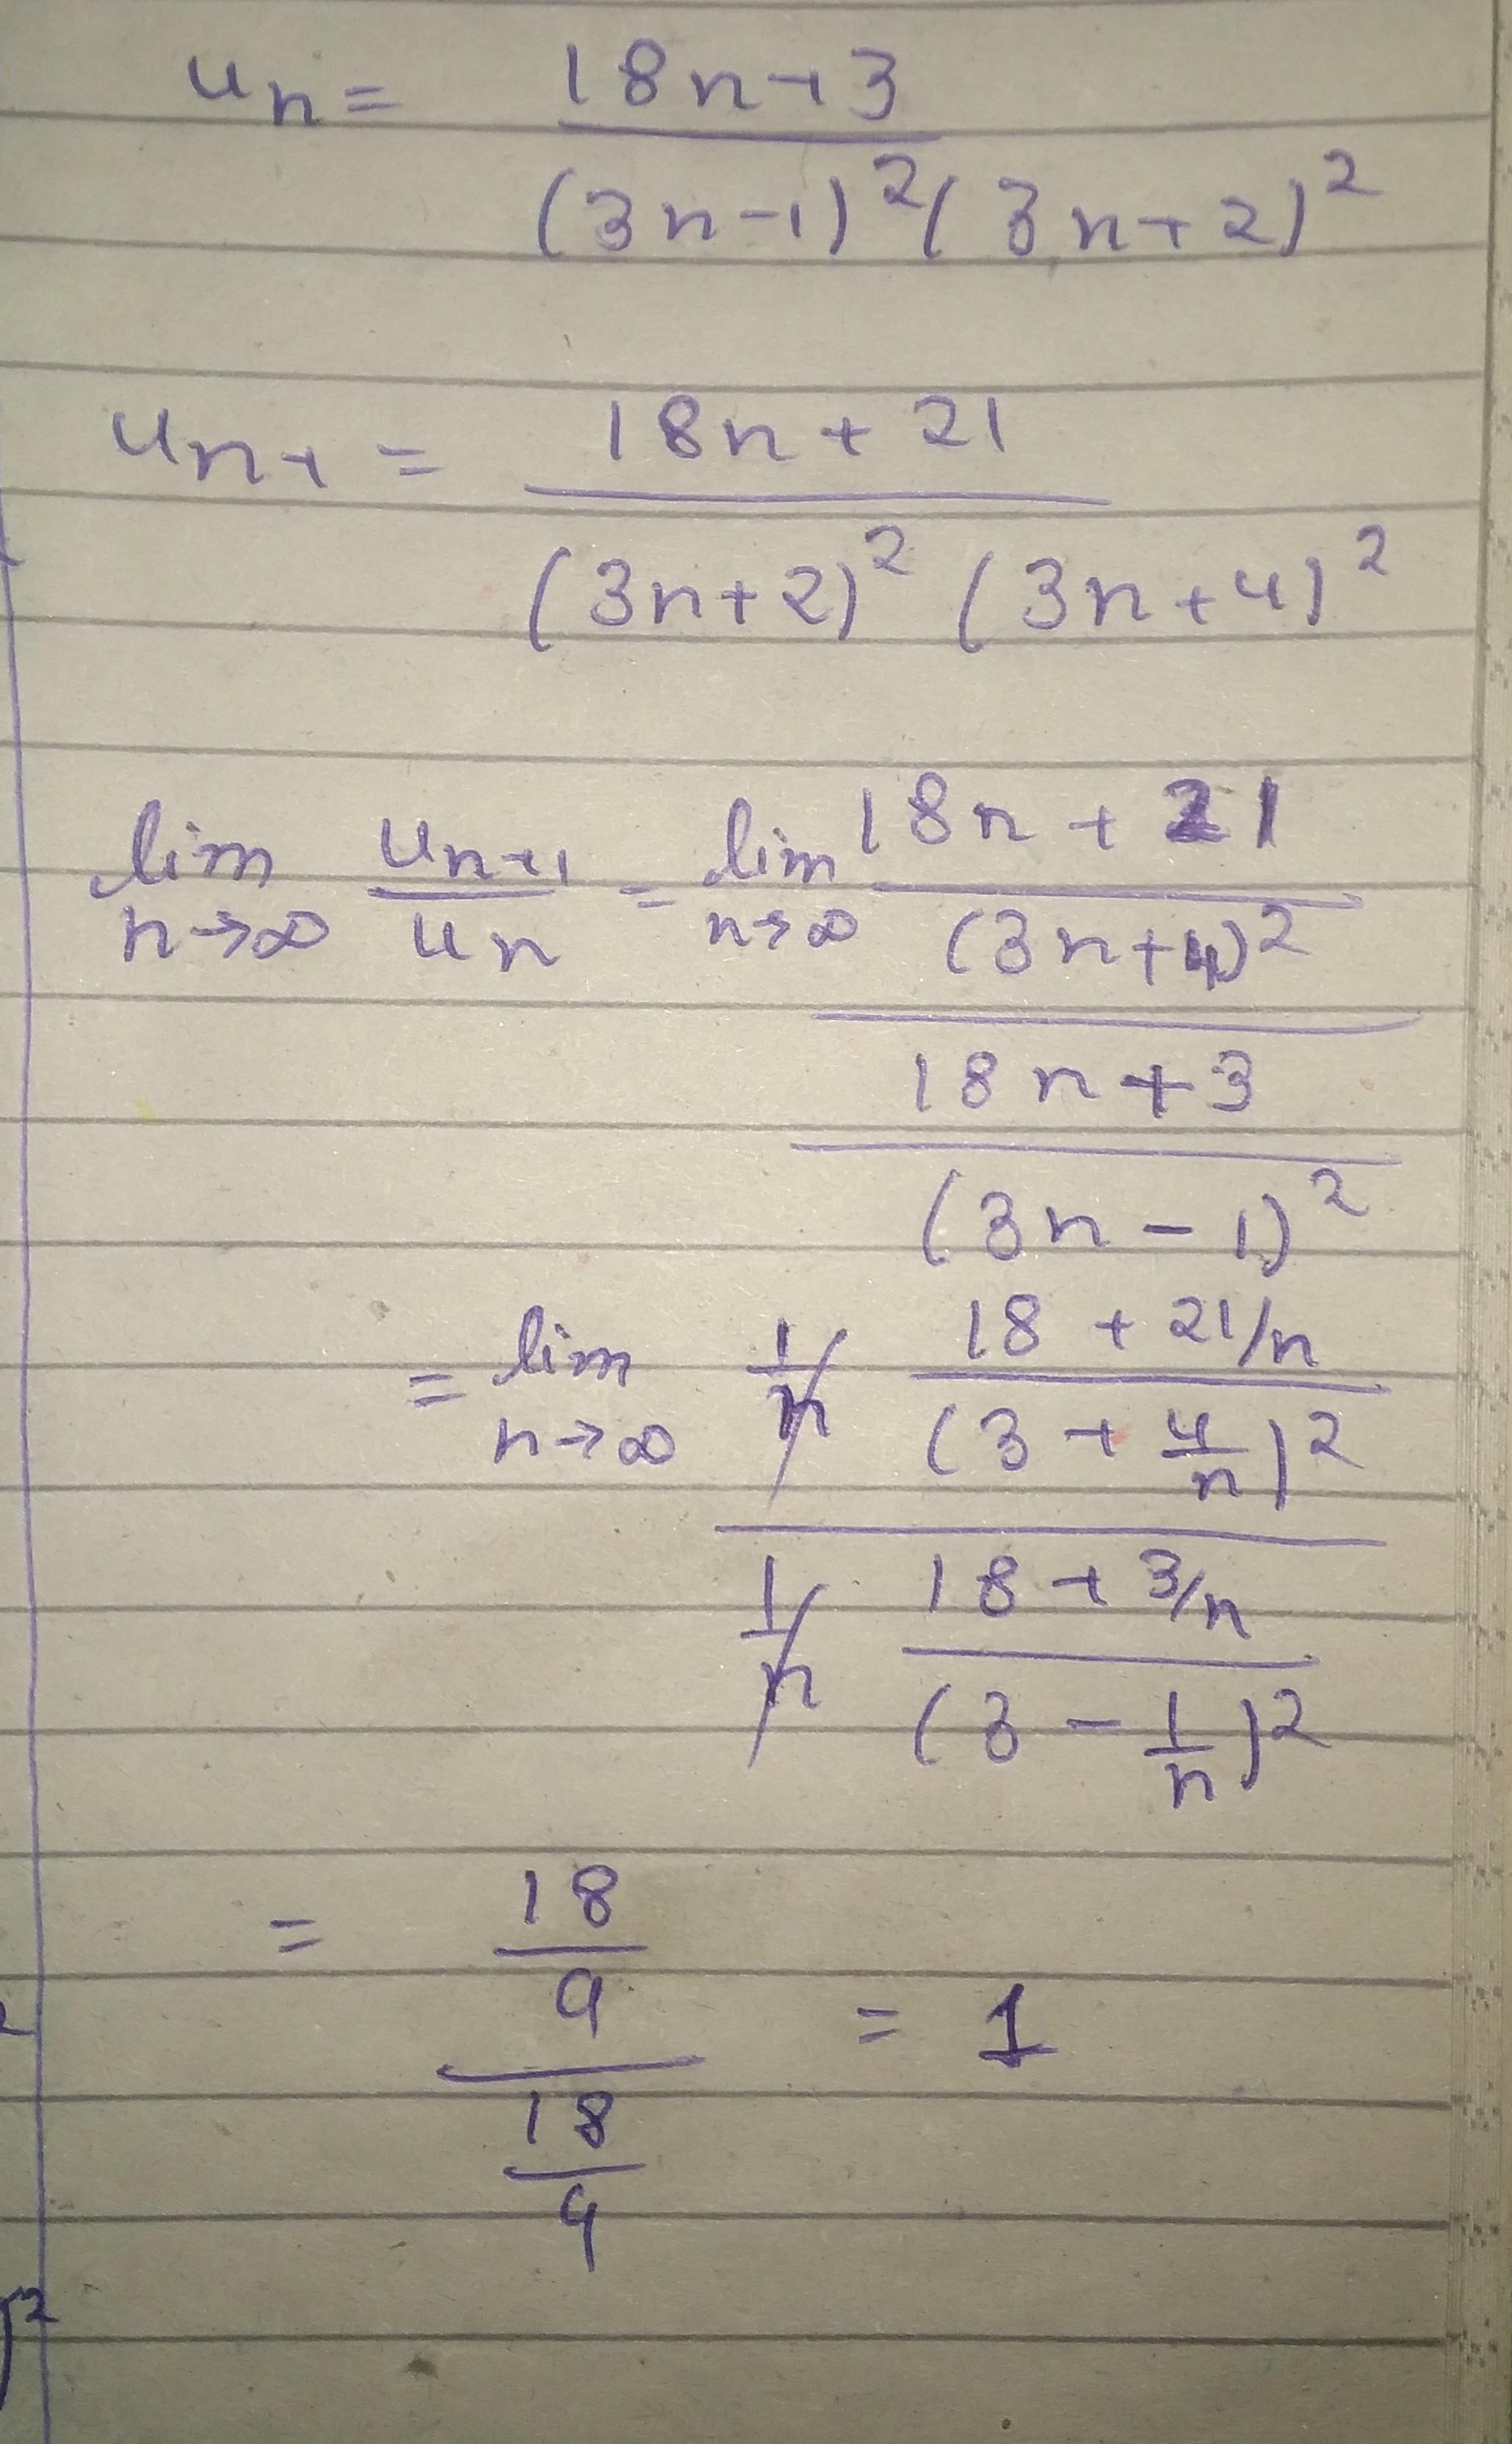 uₙ = (18n+3) / ((3n-1)²(3n+2)²)
uₙ₊₁ = (18n+21) / ((3n+2)² (3n+4)²)
lim n→∞ uₙ₊₁/uₙ = lim n→∞ ((18n+21)/(3n+4)²) / ((18n+3)/(3n-1)²)
= lim n→∞ (1/n (18+21/n)/(3+4/n)²) / (1/n (18+3/n)/(3-1/n)²)
= (18/9) / (18/9) = 1
2
)²